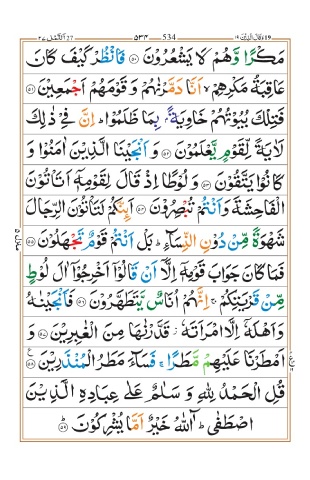 وقال الذين ١٩ ٥٣٤ 534 النمل ٢٧
مَكْرًا وَّهُمْ لَا يَشْعُرُوْنَ ۝٥٠ فَانْظُرْ كَيْفَ كَانَ
عَاقِبَةُ مَكْرِهِمْ ۙ اَنَّا دَمَّرْنٰهُمْ وَ قَوْمَهُمْ اَجْمَعِيْنَ ۝٥١
فَتِلْكَ بُيُوْتُهُمْ خَاوِيَةًۢ بِمَا ظَلَمُوْا ؕ اِنَّ فِيْ ذٰلِكَ
لَاٰيَةً لِّقَوْمٍ يَّعْلَمُوْنَ ۝٥٢ وَ اَنْجَيْنَا الَّذِيْنَ اٰمَنُوْا وَ
كَانُوْا يَتَّقُوْنَ ۝٥٣ وَ لُوْطًا اِذْ قَالَ لِقَوْمِهٖۤ اَتَاْتُوْنَ
الْفَاحِشَةَ وَ اَنْتُمْ تُبْصِرُوْنَ ۝٥٤ اَئِنَّكُمْ لَتَاْتُوْنَ الرِّجَالَ
شَهْوَةً مِّنْ دُوْنِ النِّسَآءِ ؕ بَلْ اَنْتُمْ قَوْمٌ تَجْهَلُوْنَ ۝٥٥
فَمَا كَانَ جَوَابَ قَوْمِهٖۤ اِلَّاۤ اَنْ قَالُوْۤا اَخْرِجُوْۤا اٰلَ لُوْطٍ
مِّنْ قَرْيَتِكُمْ ۚ اِنَّهُمْ اُنَاسٌ يَّتَطَهَّرُوْنَ ۝٥٦ فَاَنْجَيْنٰهُ
وَ اَهْلَهٗۤ اِلَّا امْرَاَتَهٗ ؗ قَدَّرْنٰهَا مِنَ الْغٰبِرِيْنَ ۝٥٧ وَ
اَمْطَرْنَا عَلَيْهِمْ مَّطَرًا ۚ فَسَآءَ مَطَرُ الْمُنْذَرِيْنَ ۝٥٨
قُلِ الْحَمْدُ لِلّٰهِ وَ سَلٰمٌ عَلٰى عِبَادِهِ الَّذِيْنَ
اصْطَفٰى ؕ آٰللّٰهُ خَيْرٌ اَمَّا يُشْرِكُوْنَ ۝٥٩